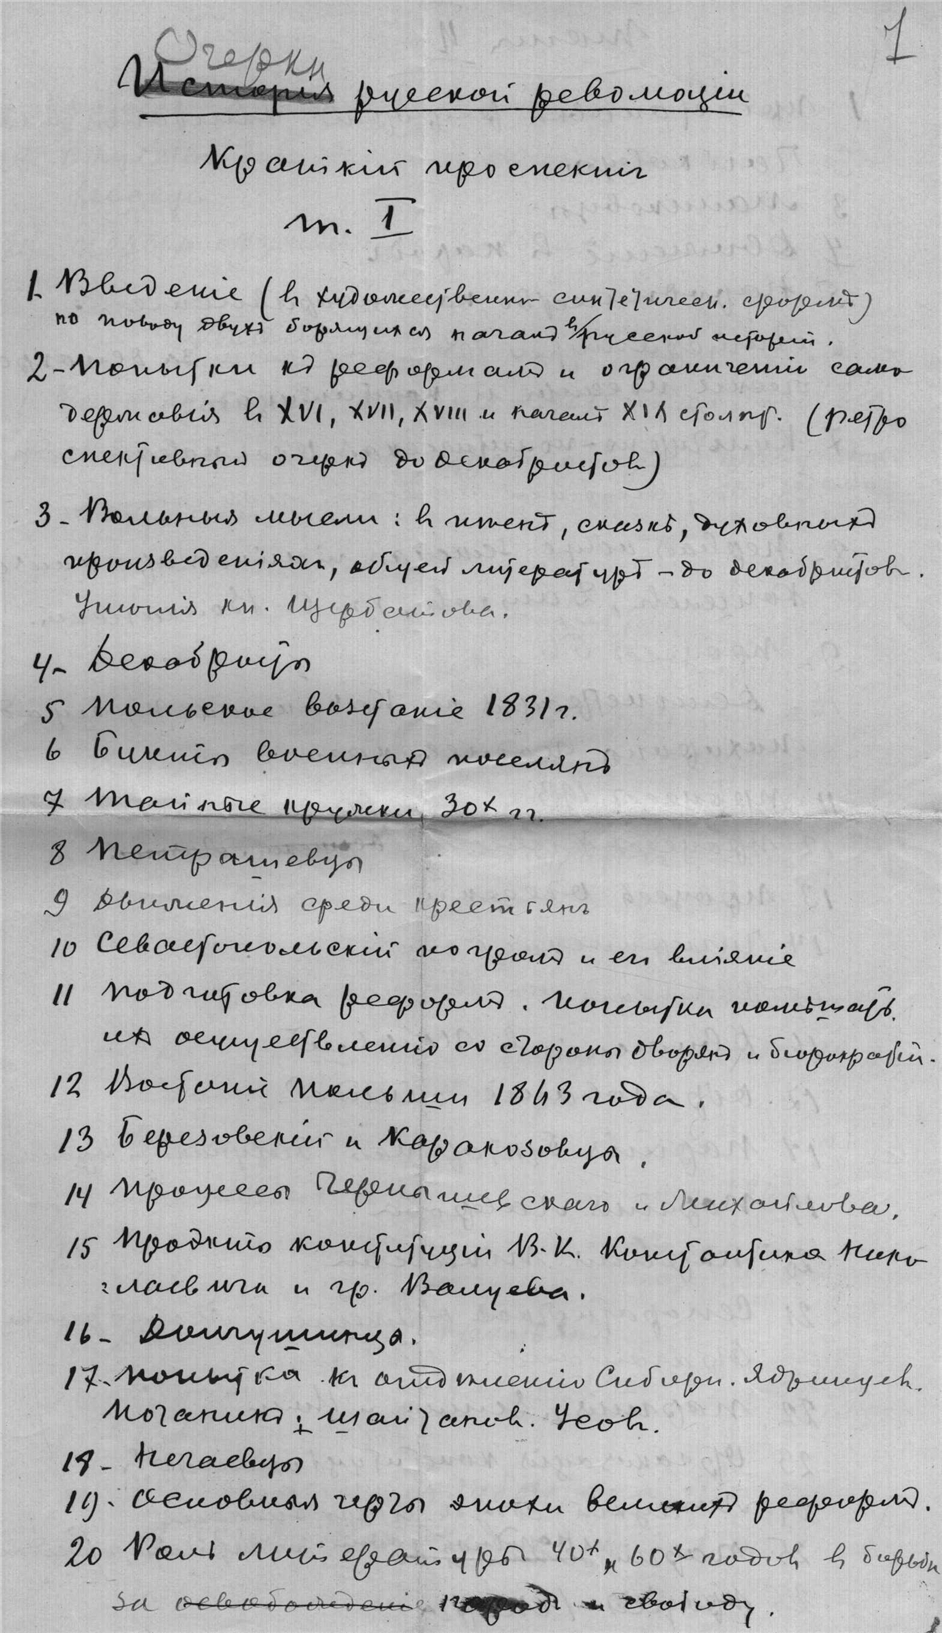 1
Очерки
История русской революціи
Краткій проспектъ
т. I
1. Введеніе (въ художественно синтетическ. формѣ)
по поводу двухъ борящихся началъ въ русской исторіи.
2 - Попытки къ реформамъ и ограниченію само
державія въ XVI, XVII, XVIII и началѣ XIX столѣт. (Ретро
спективный очеркъ до декабристовъ)
3 - Вольныя мысли: въ пѣснѣ, сказкѣ, духовныхъ
произведеніяхъ, общей литературѣ - до декабристовъ.
Утопія кн. Щербатова.
4 - Декабристы
5 Польское возстаніе 1831 г.
6 Бунты военныхъ поселянъ
7 Тайные кружки 30х гг.
8 Петрашевцы
9 Движенія среди крестьянъ
10 Севастопольскій погромъ и его вліяніе
11 Подготовка реформъ. Попытки помѣшать
ихъ осуществленію со стороны дворянъ и бюрократіи.
12 Востаніе Польши 1863 года.
13 Березовскій и Каракозовцы.
14 Процессы Чернышевскаго и Михайлова.
15 Проэкты конституціи В. К. Константина Нико
=лаевича и гр. Валуева.
16 - Долгушинцы.
17. Попытка къ отдѣленію Сибири. Ядринцев.
Потанинъ, Шайтановъ. Усовъ.
18 - Нечаевцы
19. Основныя черты эпохи великихъ реформъ.
20 Роль литературы 40х и 60х годовъ въ борьбѣ
за освобожденіе народа и свободу.